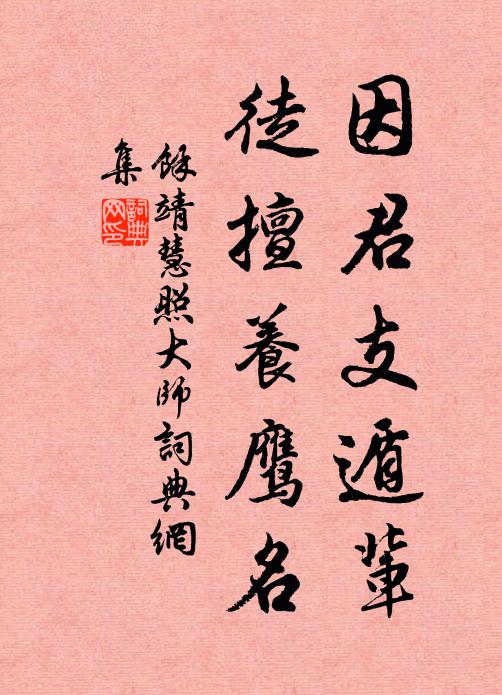 因君支遁輩
徒擅養鷹名
餘靖慧照大師詞典網
集
詞典
网印